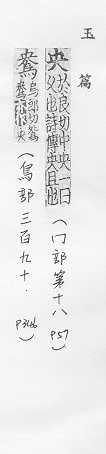 玉篇
央 於良切中央一曰
久也詩傳央且也
(冂部第十八 P57)
鴦 烏郎切鴛
(鳥部三百九十. P346)